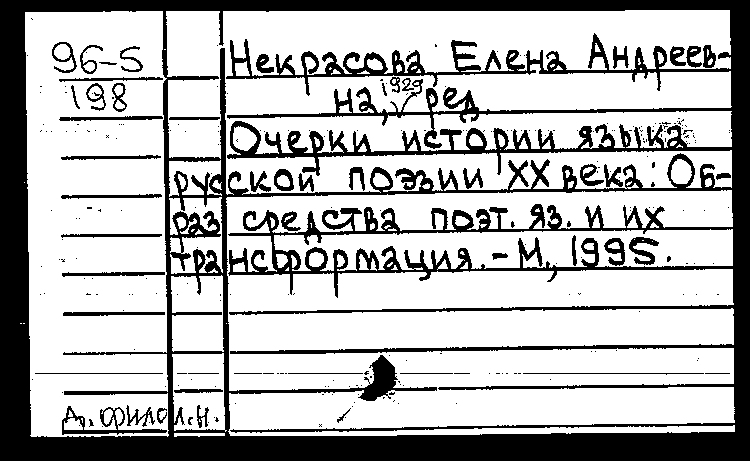 96-5
198
Некрасова, Елена Андреев-
на, 1929 ред.
Очерки истории языка
русской поэзии XX века: Об-
раз средства поэт. яз. и их
трансформация. - М., 1995.
Др. филол.н.